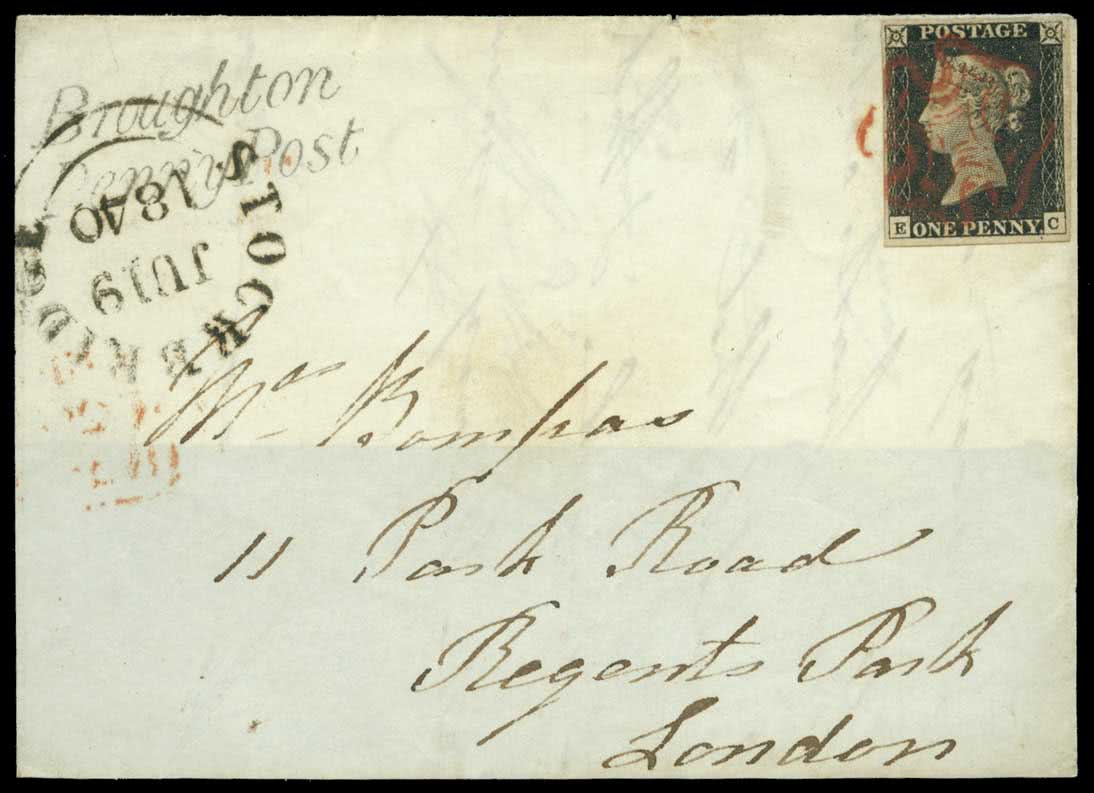 POSTAGE
E ONE PENNY C
Broughton
Penny Post
STOCKBRIDGE
JU 19
1840
Mrs Kompas
11 Park Road
Regents Park
London